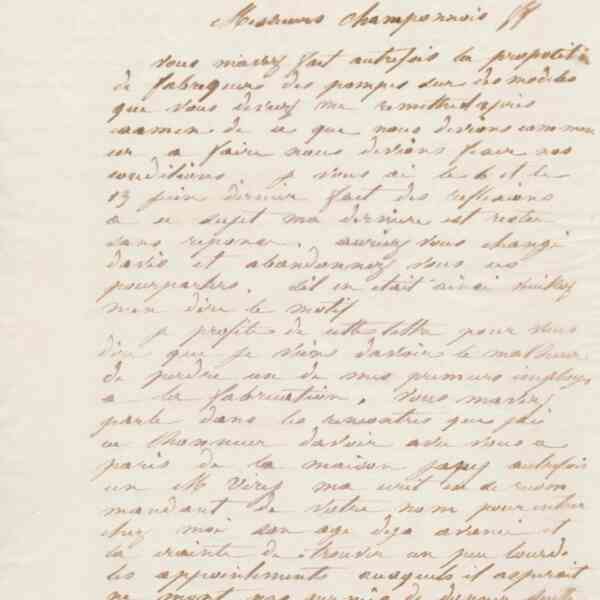 Messieurs Champonnois ff
vous m'avez fait autrefois la propositi
de fabriquer des pompes sur des modeles
que vous deviez me remettre apres
examen de ce que nous devions commen
cer a faire nous devions fixer nos
conditions. je vous ai le 6 et le
13 juin dernier fait des reflexions
a ce sujet ma derniere est restee
sans reponse. auriez vous changé
d'avis et abandonnez vous ces
pourparlers. s'il en etait ainsi veuillez
m'en dire le motif
je profite de cette lettre pour vous
dire que je viens d'avoir le malheur
de perdre un de mes premiers employes
a la fabrication. vous m'avez
parlé dans les rencontres que j'ai
eu l'honneur d'avoir avec vous a
paris de la maison japy autrefois
un M Viry m'a ecrit en se recom
mandant de votre nom pour entrer
chez moi son age deja avancé et
la crainte de trouver un peu lourds
les appointements auxquels il aspirait
ne m'ont pas permis de donner suite